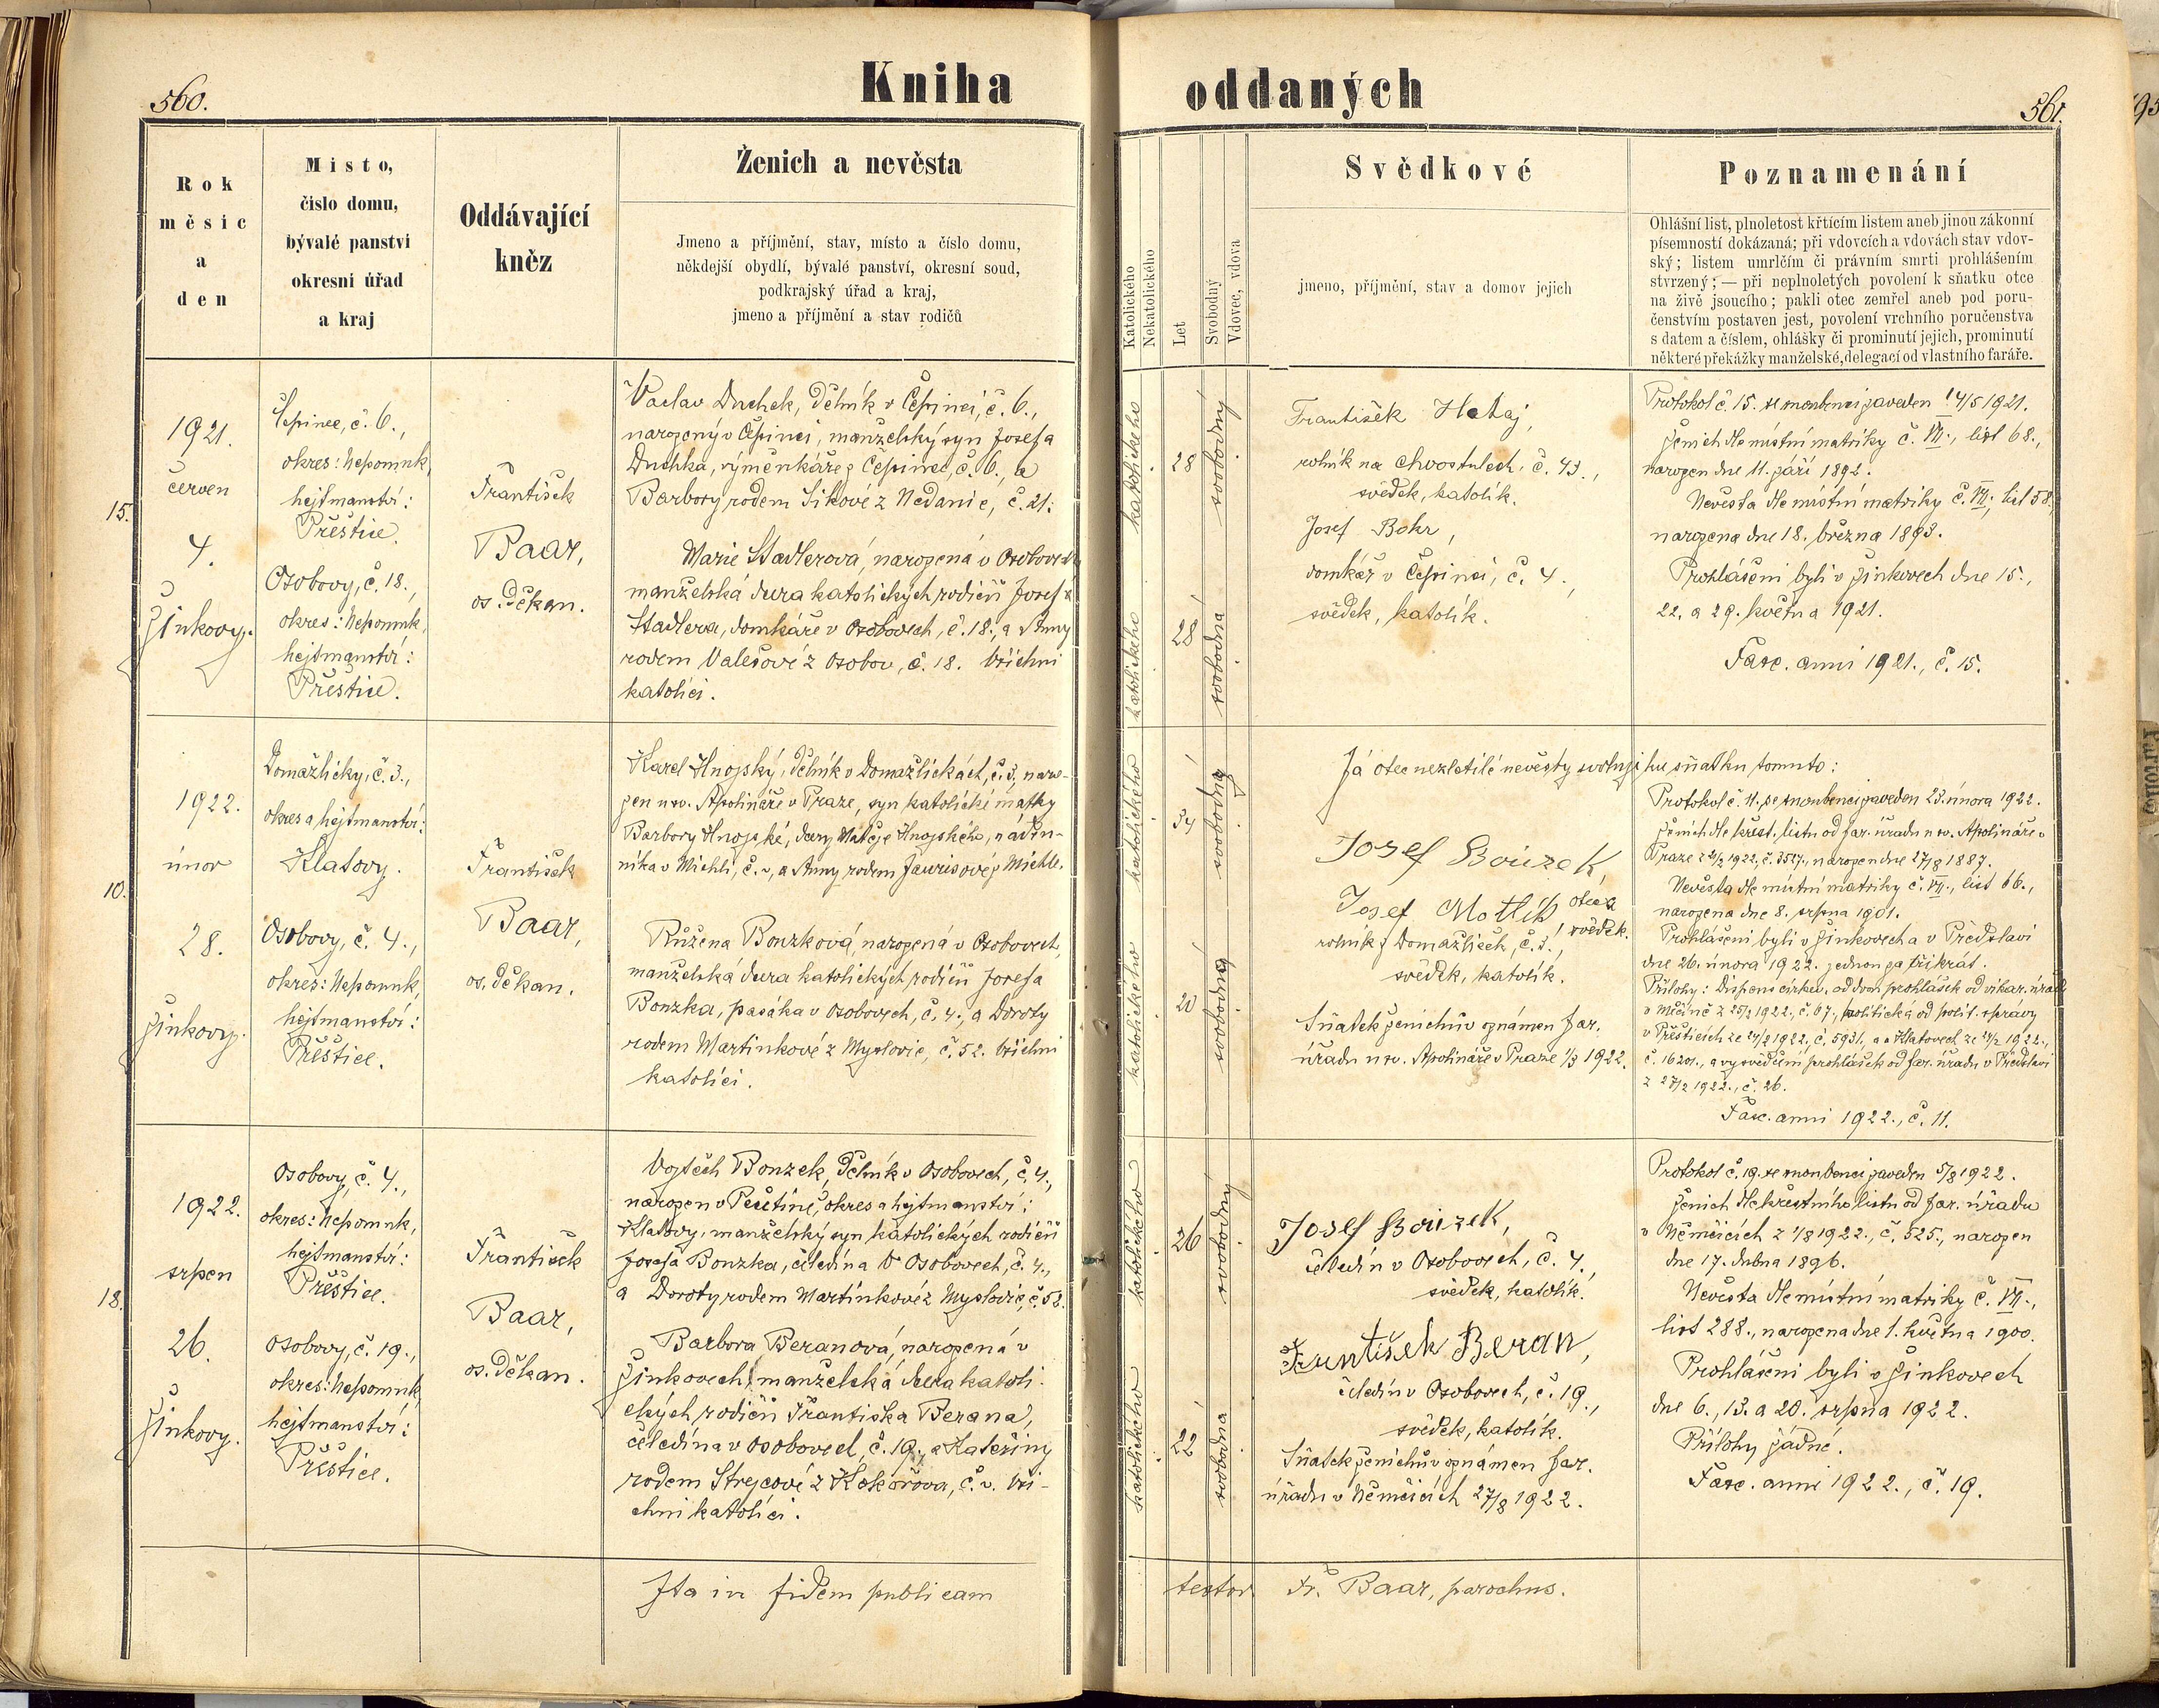 560.
Kniha
oddaných
561.
Rok
měsíc
a
den
Místo,
číslo domu,
bývalé panství
okresní úřad
a kraj
Oddávající
kněz
Ženich a nevěsta
Jmeno a příjmění, stav, místo a číslo domu,
někdejší obydlí, bývalé panství, okresní soud,
podkrajský úřad a kraj,
jmeno a příjmění a stav rodičů
Katolického
Nekatolického
Let
Svobodný
Vdovec, vdova
Svědkové
jmeno, příjmění, stav a domov jejich
Poznamenání
Ohlášní list, plnoletost křtícím listem aneb jinou zákonní
písemností dokázaná; při vdovcích a vdovách stav vdov-
ský; listem umrlčím či právním smrti prohlášením
stvrzený; — při neplnoletých povolení k sňatku otce
na živě jsoucího; pakli otec zemřel aneb pod poru-
čenstvím postaven jest, povolení vrchního poručenstva
s datem a číslem, ohlášky či prominutí jejich, prominutí
některé překážky manželské, delegací od vlastního faráře.
15.
1921.
červen
4.
Žinkovy.
Čepinec, č. 6.,
okres: Nepomuk,
hejtmanství:
Přeštice.
Osobovy, č. 18.,
okres: Nepomuk,
hejtmanství:
Přeštice.
František
Baar,
os. děkan.
Vaclav Duchek, dělník v Čepinci, č. 6.,
narozený v Čepinci, manželský syn Josefa
Duchka, výměnkáře z Čepince, č. 6., a
Barbory rodem Sikové z Nedanic, č. 21.
Marie Stadlerová, narozená v Osobovech
manželská dcera katolických rodičů Josefa
Stadlera, domkáře v Osobovech, č. 18., a Anny
rodem Valešové z Osobov, č. 18. Všichni
katolíci.
katolického
28
svobodný
katolického
28
svobodná
František Hataj,
rolník na Chvostulech, č. 43.,
svědek, katolík.
Josef Bohr,
domkář v Čepinci, č. 4.,
svědek, katolík.
Protokol č. 15. se snoubenci zaveden 14/5 1921.
Ženich dle místní matriky č. VII., list 68.,
narozen dne 11. září 1892.
Nevěsta dle místní matriky č. VII., list 58.,
narozena dne 18. března 1893.
Prohlášeni byli v Žinkovech dne 15.,
22. a 29. května 1921.
Fasc. anni 1921., č. 15.
10.
1922.
únor
28.
Žinkovy.
Domažličky, č. 3.,
okres a hejtmanství:
Klatovy.
Osobovy, č. 4.,
okres: Nepomuk,
hejtmanství:
Přeštice.
František
Baar,
os. děkan.
Karel Hnojský, dělník v Domažličkách, č. 3, naro-
zen u sv. Apolináře v Praze, syn katolické matky
Barbory Hnojské, dcery Matěje Hnojského, náden-
níka v Michli, č. –, a Anny rodem
Růžena Bouzková, narozená v Osobovech,
manželská dcera katolických rodičů Josefa
Bouzka, pasáka v Osobovech, č. 4., a Doroty
rodem Martinkové z Myslovic, č. 52. Všichni
katolíci.
katolického
34
svobodný
katolického
20
svobodná
Já otec nezletilé nevěsty svoluji ku sňatku tomuto:
Josef Bouzek,
otec a
svědek.
Josef Motlík,
rolník z Domažliček, č. 3.,
svědek, katolík.
Sňatek ženichův oznámen far.
úřadu u sv. Apolináře v Praze 1/3 1922.
Protokol č. 11. se snoubenci zaveden 23. února 1922.
Ženich dle křest. listu od far. úřadu u sv. Apolináře v
Praze z 2/2 1922, č. 3527., narozen dne 27/8 1887.
Nevěsta dle místní matriky č. VII., list 66.,
narozena dne 8. srpna 1901.
Prohlášeni byli v Žinkovech a v Předslavi
dne 26. února 1922. jednou za třikrát.
Přílohy: Dispens církev. od dvou prohlášek od vikar. úřadu
v Měčíně z 25/2 1922., č. 67., politická od polit. správy
v Přešticích ze 24/2 1922., č. 5931., a v Klatovech ze 24/2 1922.,
č. 16201., a vysvědčení prohlášek od far. úřadu v Předslavi
z 27/2 1922., č. 26.
Fasc. anni 1922., č. 11.
18.
1922.
srpen
26.
Žinkovy.
Osobovy, č. 4.,
okres: Nepomuk,
hejtmanství:
Přeštice.
Osobovy, č. 19.,
okres: Nepomuk,
hejtmanství:
Přeštice.
František
Baar,
os. děkan.
Vojtěch Bouzek, dělník v Osobovech, č. 4.,
narozen v Pečetíně, okres a hejtmanství:
Klatovy, manželský syn katolických rodičů
Josefa Bouzka, čeledína v Osobovech, č. 4.,
a Doroty rodem Martínkové z Myslovic, č. 58.
Barbora Beranová, narozená v
Žinkovech, manželská dcera katoli-
ckých rodičů Františka Berana,
čeledína v Osobovech, č. 19., a Kateřiny
rodem Strejcové z Kokořova, č. –. Vši-
chni katolíci.
katolického
26
svobodný
katolického
22
svobodná
Josef Bouzek,
čeledín v Osobovech, č. 4.,
svědek, katolík.
František Beran,
čeledín v Osobovech, č. 19.,
svědek, katolík.
Sňatek ženichův oznámen far.
úřadu v Němčicích 27/8 1922.
Protokol č. 19. se snoubenci zaveden 5/8 1922.
Ženich dle křestního listu od far. úřadu
v Němčicích z 1/8 1922., č. 525., narozen
dne 17. dubna 1896.
Nevěsta dle místní matriky č. VII.,
list 288., narozena dne 1. května 1900.
Prohlášeni byli v Žinkovech
dne 6., 13. a 20. srpna 1922.
Přílohy žádné.
Fasc. anni 1922., č. 19.
Ita in fidem publicam
testor Fr. Baar, parochus.